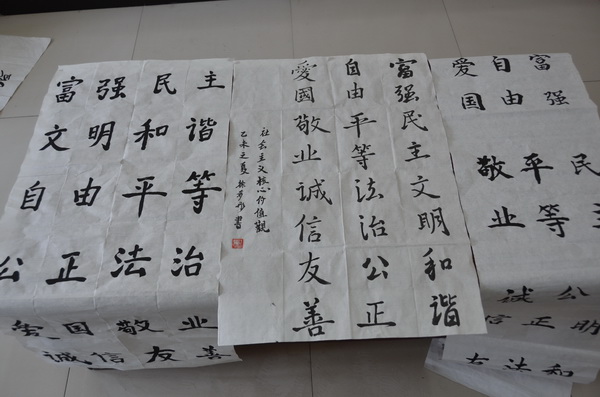 富强民主
文明和谐
自由平等
公正法治
爱国敬业
诚信友善
富强民主文明和谐
自由平等法治公正
愛國敬业诚信友善
社会主义核心价值觀
乙未之夏 書
富强民主明和
自由平等公正法
爱国敬业诚信友